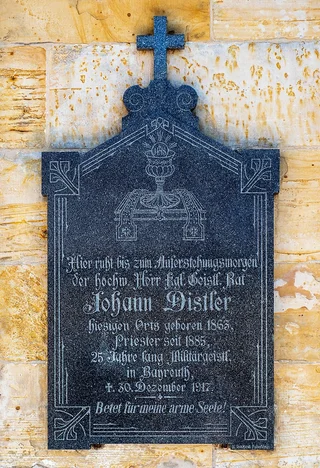 Hier ruht bis zum Auferstehungsmorgen
der hochw. Herr Kgl. Geistl. Rat
Johann Distler
hiesigen Orts geboren 1863,
Priester seit 1885,
25 Jahre lang Militärgeistl.
in Bayreuth,
† 30. Dezember 1917.
Betet für meine arme Seele!